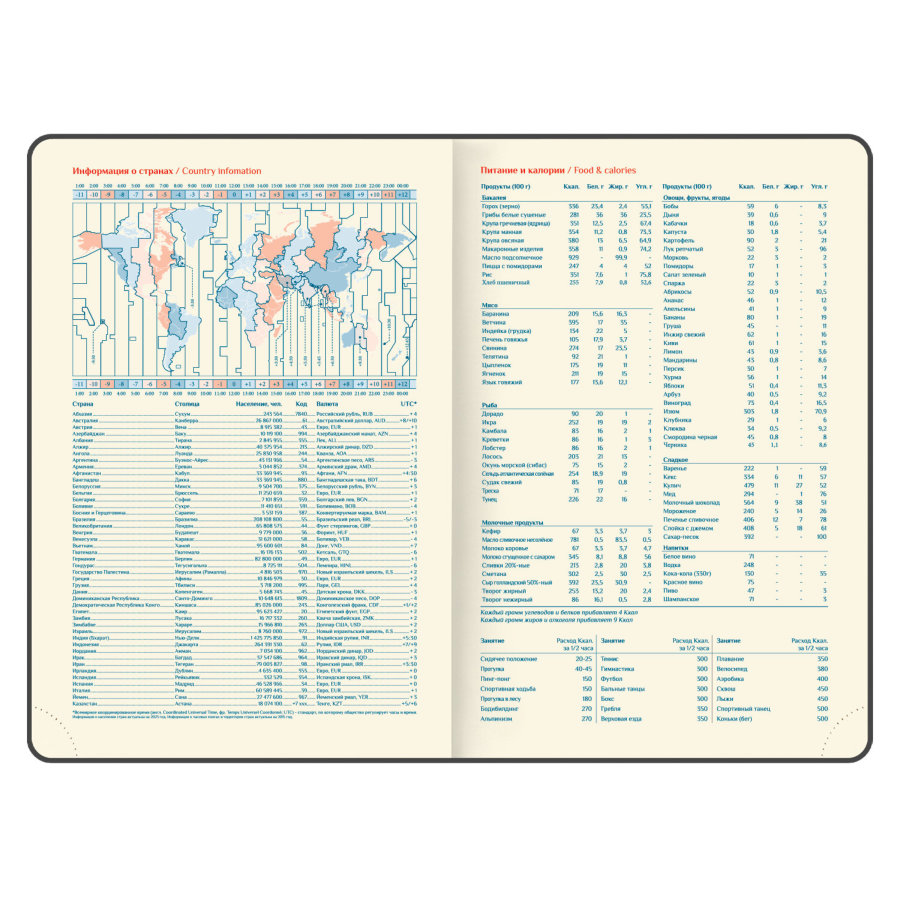 Информация о странах / Country infomation
1:00 2:00 3:00 4:00 5:00 6:00 7:00 8:00 9:00 10:00 11:00 12:00 13:00 14:00 15:00 16:00 17:00 18:00 19:00 20:00 21:00 22:00 23:00 00:00
-11 -10 -9 -8 -7 -6 -5 -4 -3 -2 -1 0 +1 +2 +3 +4 +5 +6 +7 +8 +9 +10 +11 +12
-11 -10 -9 -8 -7 -6 -5 -4 -3 -2 -1 0 +1 +2 +3 +4 +5 +6 +7 +8 +9 +10 +11 +12
1:00 2:00 3:00 4:00 5:00 6:00 7:00 8:00 9:00 10:00 11:00 12:00 13:00 14:00 15:00 16:00 17:00 18:00 19:00 20:00 21:00 22:00 23:00 00:00
Страна Столица Население, чел. Код Валюта UTC*
Абхазия Сухум 243 564 7840 Российский рубль, RUB +4
Австралия Канберра Австралийский доллар, AUD +8/+10
Австрия Вена Евро, EUR +1
Азербайджан Баку 994 Азербайджанский манат, AZN +4
Албания Тирана 355 Лек, ALL +1
Алжир Алжир 213 Алжирский динар, DZD +1
Ангола Луанда 244 Кванза, AOA +1
Аргентина Буэнос-Айрес 54 Аргентинское песо, ARS -3
Армения Ереван 374 Армянский драм, AMD +4
Афганистан Кабул 93 Афгани, AFN +4:30
Бангладеш Дакка 880 Бангладешская така, BDT +6
Белоруссия Минск 375 Белорусский рубль, BYN +3
Бельгия Брюссель 32 Евро, EUR +1
Болгария София 359 Болгарский лев, BGN +2
Боливия Сукре 591 Боливиано, BOB -4
Босния и Герцеговина Сараево 387 Конвертируемая марка, BAM +1
Бразилия Бразилиа 55 Бразильский реал, BRL -5/-3
Великобритания Лондон 44 Фунт стерлингов, GBP +0
Венгрия Будапешт 36 Форинт, HUF +1
Венесуэла Каракас 58 Боливар, VEB -4
Вьетнам Ханой 84 Донг, VND +7
Гватемала Гватемала 502 Кетсаль, GTQ -6
Германия Берлин 49 Евро, EUR +1
Гондурас Тегусигальпа 504 Лемпира, HNL -6
Государство Палестина Иерусалим (Рамалла) 970 Новый израильский шекель, ILS +2
Греция Афины 30 Евро, EUR +2
Грузия Тбилиси 995 Лари, GEL +4
Дания Копенгаген 45 Датская крона, DKK +1
Доминиканская Республика Санто-Доминго 1809 Доминиканское песо, DOP -4
Демократическая Республика Конго Киншаса 243 Конголезский франк, CDF +1/+2
Египет Каир 20 Египетский фунт, EGP +2
Замбия Лусака 260 Квача замбийская, ZMK +2
Зимбабве Хараре 263 Доллар США, USD +2
Израиль Иерусалим 972 Новый израильский шекель, ILS +2
Индия (Бхарат) Нью-Дели 91 Индийская рупия, INR +5:30
Индонезия Джакарта 62 Рупия, IDR +7/+9
Иордания Амман 962 Иорданский динар, JOD +2
Ирак Багдад 964 Иракский динар, IQD +3
Иран Тегеран 98 Иранский риал, IRR +3:30
Ирландия Дублин 353 Евро, EUR +0
Исландия Рейкьявик 354 Исландская крона, ISK +0
Испания Мадрид 34 Евро, EUR +1
Италия Рим 39 Евро, EUR +1
Йемен Сана 967 Йеменский риал, YER +3
Казахстан Астана +7 xxx Тенге, KZT +5/+6
Питание и калории / Food & calories
Продукты (100 г) Ккал. Бел. г Жир. г Угл. г
Бакалея
Горох (зерно) 336 23,4 2,4 53,1
Грибы белые сушеные 281 36 36 23,5
Крупа гречневая (ядрица) 351 12,5 2,5 67,4
Крупа манная 354 11,2 0,8 73,3
Крупа овсяная 380 13 6,5 64,9
Макаронные изделия 358 11 0,9 74,2
Масло подсолнечное 929 - 99,9 -
Пицца с помидорами 247 4 4 52
Рис 351 7,6 1 75,8
Хлеб пшеничный 255 7,9 0,8 52,6
Мясо
Баранина 209 15,6 16,3 -
Ветчина 395 17 35 -
Индейка (грудка) 134 22 5 -
Печень говяжья 105 17,9 3,7 -
Свинина 274 17 23,5 -
Телятина 92 21 1 -
Цыпленок 175 19 11 -
Ягненок 211 19 15 -
Язык говяжий 177 13,6 12,1 -
Рыба
Дорадо 90 20 1 -
Икра 252 19 19 2
Камбала 83 16 2 1
Креветки 86 16 1 3
Лобстер 86 16 2 1
Лосось 203 21 13 -
Окунь морской (сибас) 75 15 2 -
Сельдь атлантическая солёная 254 18,9 19 -
Судак свежий 85 19 0,8 -
Треска 71 17 - -
Тунец 226 22 16 -
Молочные продукты
Кефир 67 3,3 3,7 3
Масло сливочное несолёное 781 0,5 83,5 0,5
Молоко коровье 67 3,3 3,7 4,7
Молоко сгущенное с сахаром 345 8,1 8,8 56
Сливки 20%-ные 213 2,8 20 3,8
Сметана 302 2,5 30 2,5
Сыр голландский 50%-ный 392 23,5 30,9 -
Творог жирный 253 13,2 20 2,4
Творог нежирный 86 16,1 0,5 2,8
Продукты (100 г) Ккал. Бел. г Жир. г Угл. г
Овощи, фрукты, ягоды
Бобы 59 6 - 8,3
Дыня 39 0,6 - 9
Кабачки 18 0,6 - 3,7
Капуста 30 1,8 - 5,4
Картофель 90 2 - 21
Лук репчатый 52 3 - 96
Морковь 22 3 - 2
Помидоры 17 1 - 3
Салат зеленый 10 1 - 1
Спаржа 22 3 - 2
Абрикосы 52 0,9 - 10,5
Ананас 46 1 - 12
Апельсины 41 1 - 9
Бананы 80 1 - 19
Груша 45 - - 11
Инжир свежий 62 1 - 16
Киви 61 1 - 15
Лимон 43 0,9 - 3,6
Мандарины 43 0,8 - 8,6
Персик 30 1 - 7
Хурма 56 1 - 14
Яблоки 51 0,4 - 11,3
Арбуз 40 0,5 - 9,2
Виноград 73 0,4 - 16,5
Изюм 303 1,8 - 70,9
Клубника 29 1 - 6
Клюква 34 0,5 - 9,2
Смородина черная 45 0,8 - 8
Черника 43 1,1 - 8,6
Сладкое
Варенье 222 1 - 59
Кекс 334 6 11 57
Кулич 479 11 27 52
Мед 294 - 1 76
Молочный шоколад 564 9 38 51
Мороженое 240 5 14 26
Печенье сливочное 406 12 7 78
Слойка с джемом 408 5 18 61
Сахар-песок 392 - - 100
Напитки
Белое вино 71 - - -
Водка 248 - - -
Кока-кола (330г) 130 - - 35
Красное вино 75 - - -
Пиво 47 - - 3
Шампанское 71 - - 3
Каждый грамм углеводов и белков прибавляет 4 Ккал
Каждый грамм жиров и алкоголя прибавляет 9 Ккал
Занятие Расход Ккал. за 1/2 часа Занятие Расход Ккал. за 1/2 часа Занятие Расход Ккал. за 1/2 часа
Сидячее положение 20-25 Теннис 300 Плавание 350
Прогулка 40-45 Гимнастика 300 Велосипед 380
Пинг-понг 150 Футбол 300 Аэробика 400
Спортивная ходьба 150 Бальные танцы 300 Сквош 450
Прогулка в лесу 180 Бокс 300 Лыжи 450
Бодибилдинг 270 Гребля 350 Спортивный танец 500
Альпинизм 270 Верховая езда 350 Коньки (бег) 500